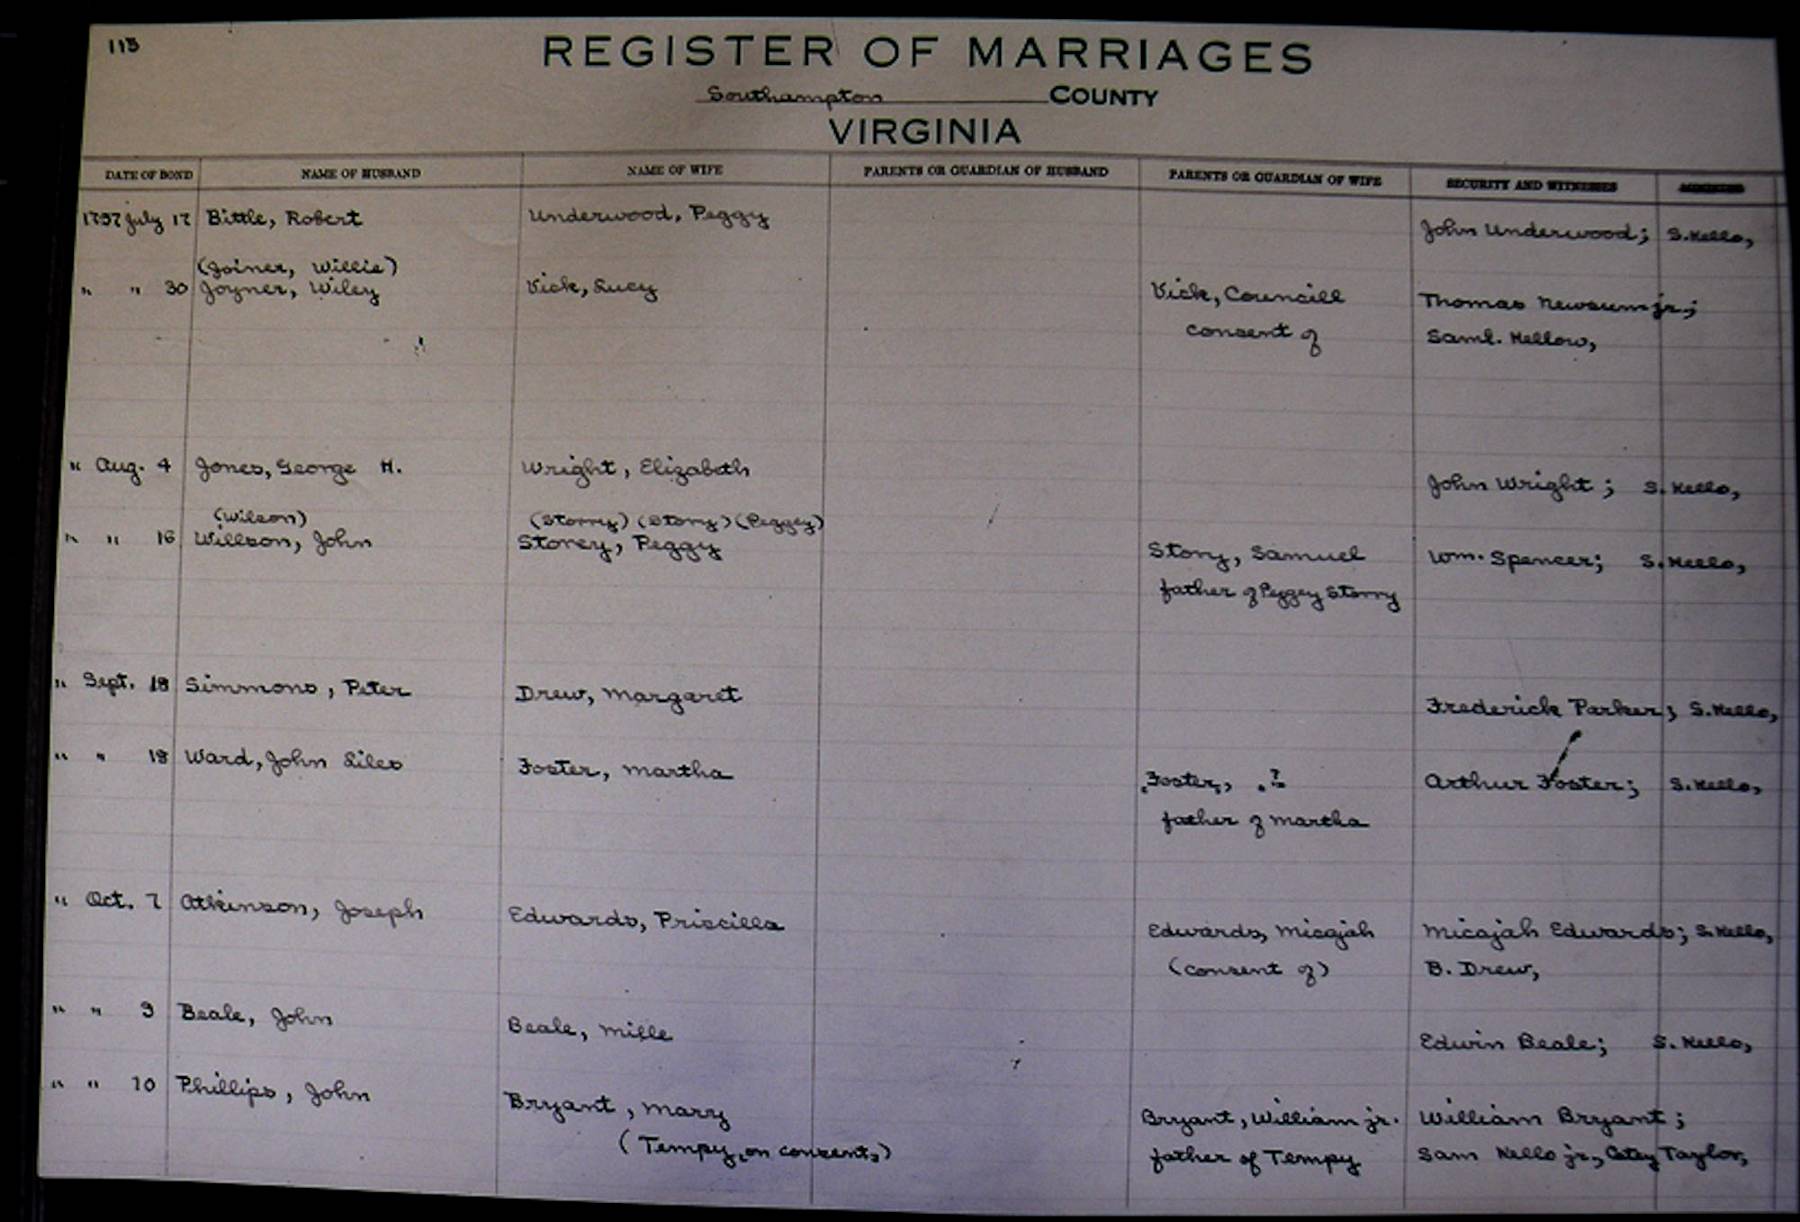 115
REGISTER OF MARRIAGES
Southampton COUNTY
VIRGINIA
DATE OF BOND NAME OF HUSBAND NAME OF WIFE PARENTS OR GUARDIAN OF HUSBAND PARENTS OR GUARDIAN OF WIFE SECURITY AND WITNESSES
1797 July 17 Bittle, Robert Underwood, Peggy John Underwood; S. Kello,
(Joiner, Willie)
" " 30 Joyner, Wiley Vick, Lucy Vick, Councill Thomas Newsum jr.;
consent of Saml. Kellow,
" Aug. 4 Jones, George H. Wright, Elizabeth John Wright; S. Kello,
(Wilson) (Storry) (Story) (Peggey)
" " 16 Willson, John Storey, Peggy Story, Samuel Wm. Spencer; S. Kello,
father of Peggey Storry
" Sept. 18 Simmons, Peter Drew, Margaret Frederick Parker; S. Kello,
" " 18 Ward, John Siles Foster, Martha Foster, ? Arthur Foster; S. Kello,
father of Martha
" Oct. 7 Atkinson, Joseph Edwards, Priscilla Edwards, Micajah Micajah Edwards; S. Kello,
(consent of) B. Drew,
" " 9 Beale, John Beale, Mille Edwin Beale; S. Kello,
" " 10 Phillips, John Bryant, Mary Bryant, William jr. William Bryant;
(Tempy, on consent,) father of Tempy Sam Kello jr., Taylor,